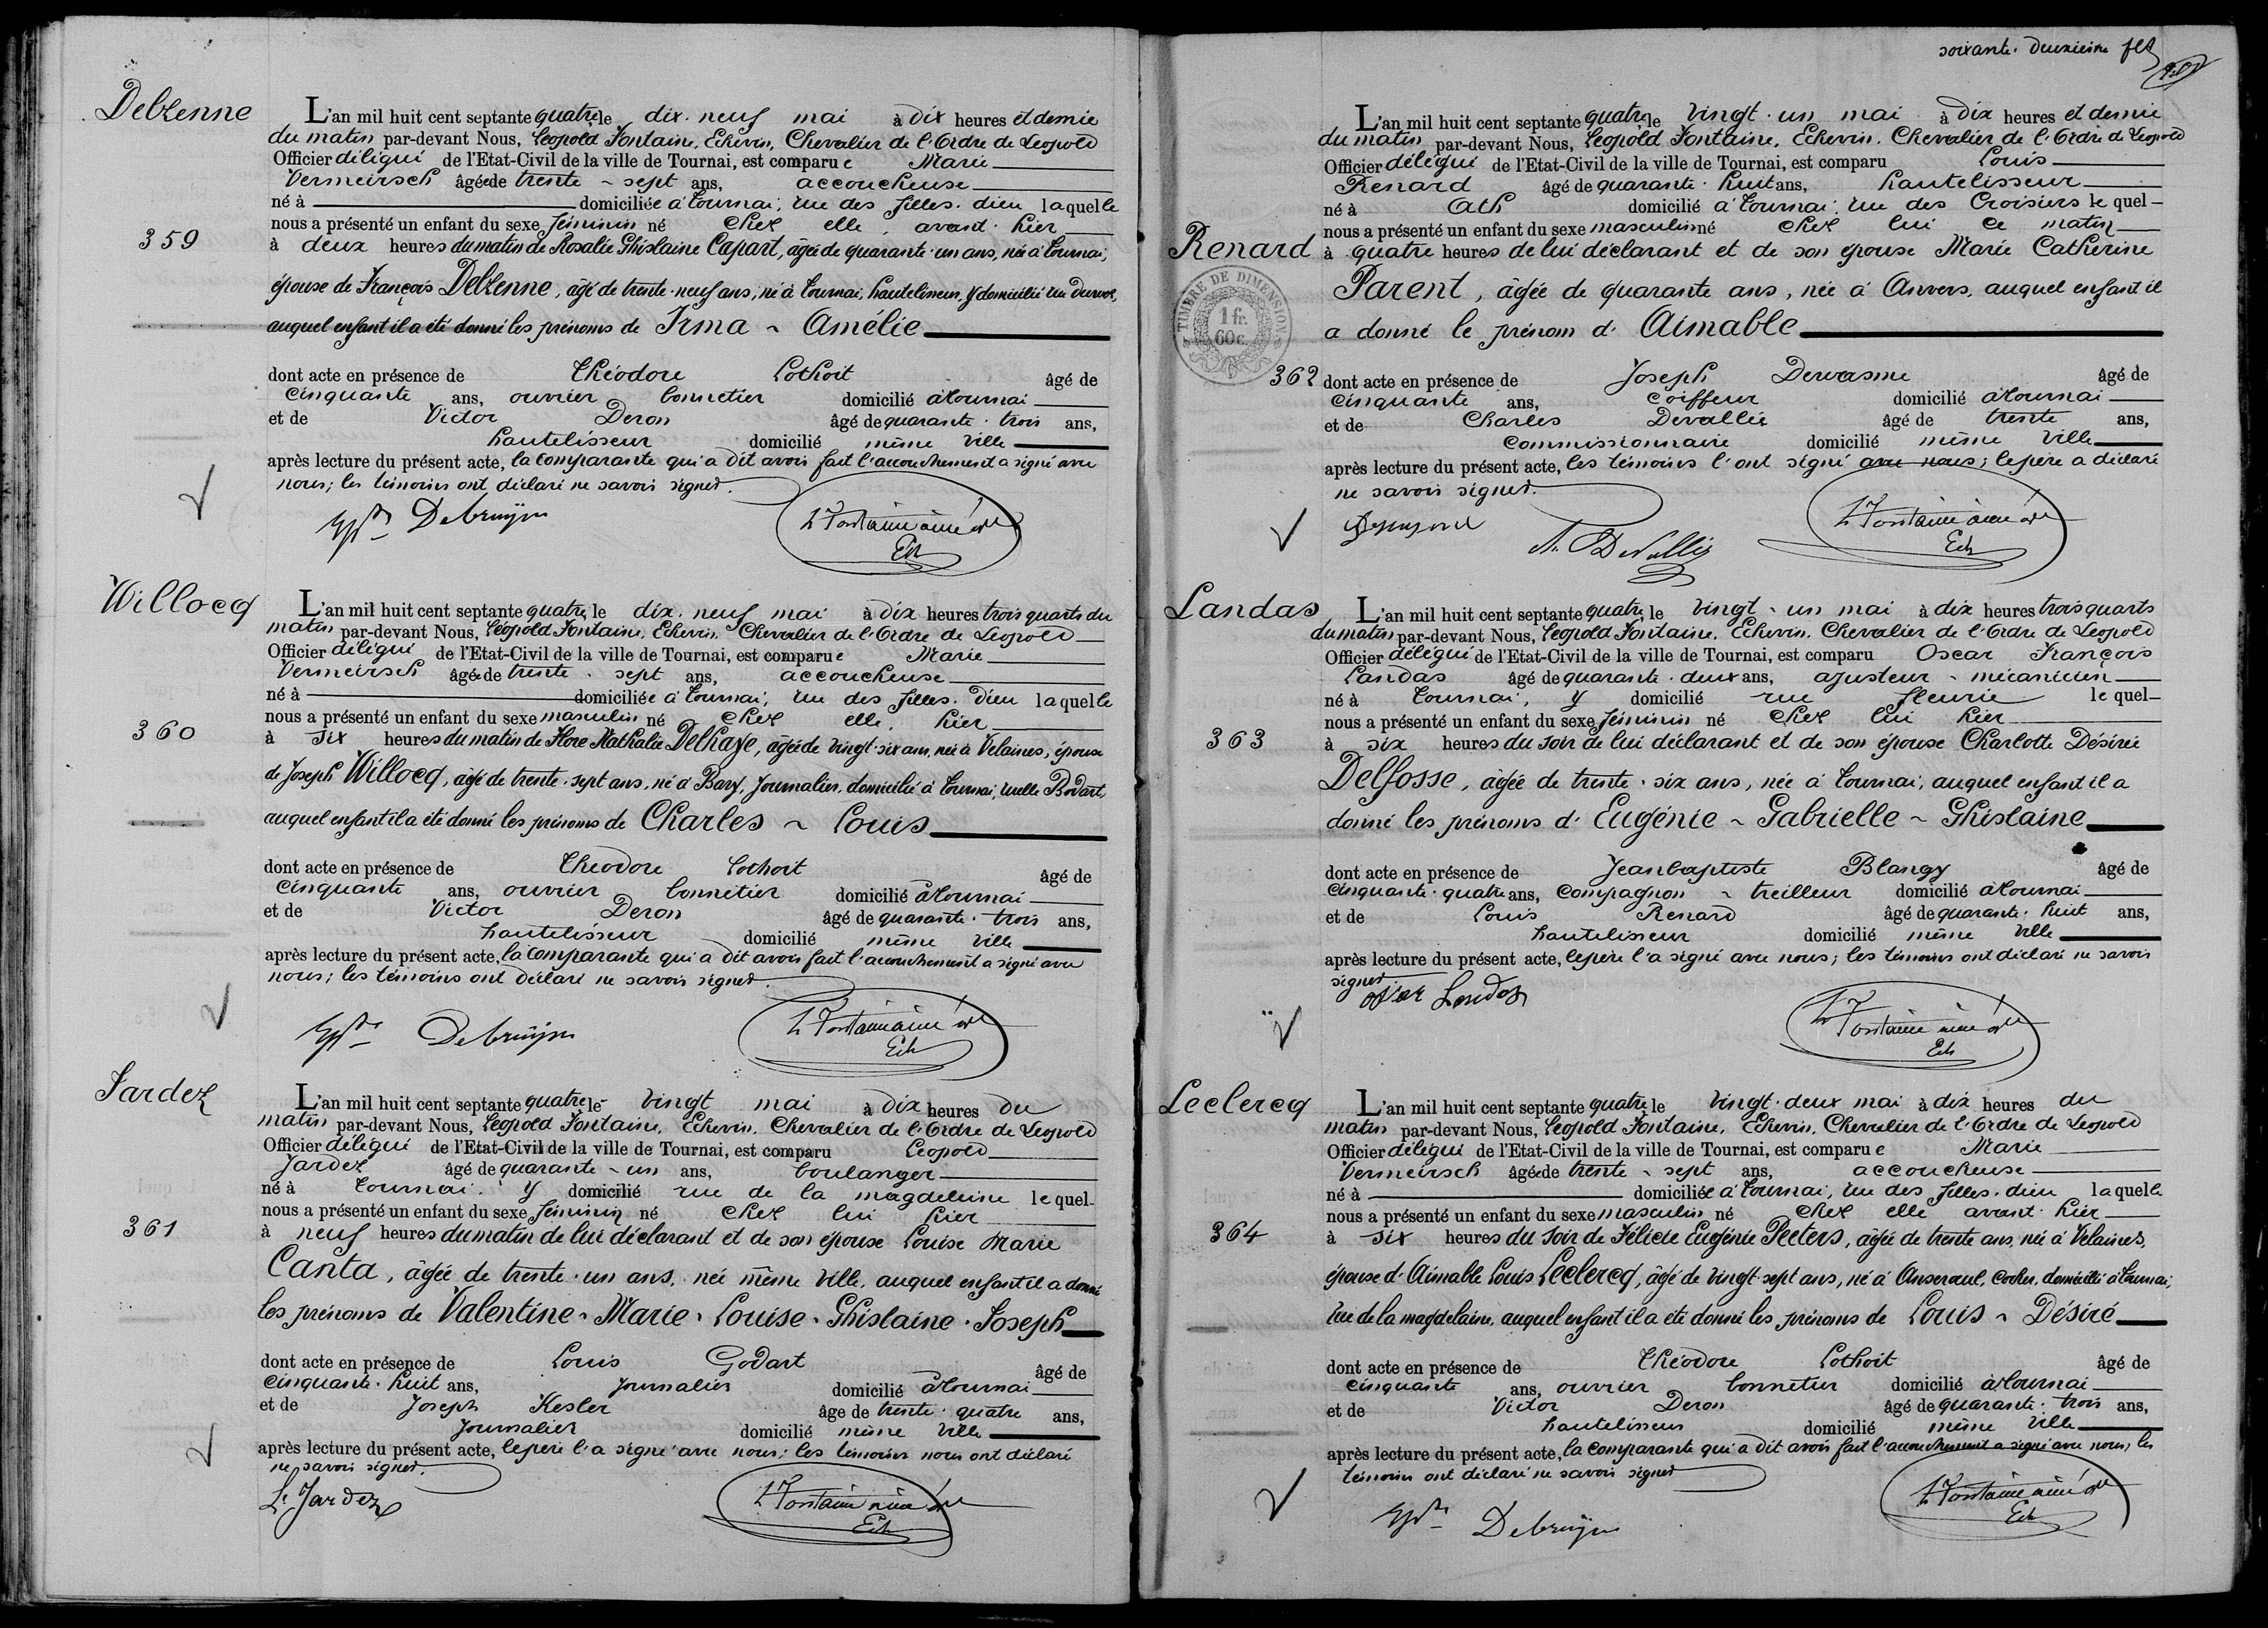 Delzenne
L'an mil huit cent septante quatre le dix-neuf mai à dix heures et demie
du matin par-devant Nous, Léopold Fontaine, Echevin, Chevalier de l'Ordre de Léopold
Officier délégué de l'Etat-Civil de la ville de Tournai, est comparue Marie
Vermeirsch âgée de trente-sept ans, accoucheuse
né à domiciliée à Tournai, rue des filles-dieu laquelle
nous a présenté un enfant du sexe féminin né chez elle, avant-hier
359
à deux heures du matin de Rosalie Ghislaine Capart, âgée de quarante-un ans, née à Tournai,
épouse de François Delzenne, âgé de trente-neuf ans, né à Tournai, hautelisseur, y domicilié rue
auquel enfant il a été donné les prénoms de Irma - Amélie
dont acte en présence de Théodore Lothoit âgé de
cinquante ans, ouvrier bonnetier domicilié à Tournai
et de Victor Deron âgé de quarante-trois ans,
hautelisseur domicilié même ville
après lecture du présent acte, la comparante qui a dit avoir fait l'accouchement a signé avec
nous; les témoins ont déclaré ne savoir signer.
Debruijn
L Fontaine ainé
Ech
Willocq
L'an mil huit cent septante quatre le dix-neuf mai à dix heures trois quarts du
matin par-devant Nous, Léopold Fontaine, Echevin, Chevalier de l'Ordre de Léopold
Officier délégué de l'Etat-Civil de la ville de Tournai, est comparue Marie
Vermeirsch âgée de trente-sept ans, accoucheuse
né à domiciliée à Tournai, rue des filles-Dieu laquelle
nous a présenté un enfant du sexe masculin né chez elle, hier
360
à six heures du matin de Flore Nathalie Delhaye, âgée de vingt-six ans, née à Velaines, épouse
de Joseph Willocq, âgé de trente-sept ans, né à Bary, journalier, domicilié à Tournai, ruelle Bodart,
auquel enfant il a été donné les prénoms de Charles - Louis
dont acte en présence de Théodore Lothoit âgé de
cinquante ans, ouvrier bonnetier domicilié à Tournai
et de Victor Deron âgé de quarante-trois ans,
hautelisseur domicilié même ville
après lecture du présent acte, la comparante qui a dit avoir fait l'accouchement a signé avec
nous; les témoins ont déclaré ne savoir signer.
Debruijn
L Fontaine ainé
Ech
Jardez
L'an mil huit cent septante quatre le vingt mai à dix heures du
matin par-devant Nous, Léopold Fontaine, Echevin, Chevalier de l'Ordre de Léopold
Officier délégué de l'Etat-Civil de la ville de Tournai, est comparu Léopold
Jardez âgé de quarante-un ans, boulanger
né à Tournai, y domicilié rue de la magdeleine lequel
nous a présenté un enfant du sexe féminin né chez lui hier
361
à neuf heures du matin de lui déclarant et de son épouse Louise Marie
Canta, âgée de trente-un ans, née même ville, auquel enfant il a donné
les prénoms de Valentine - Marie - Louise - Ghislaine - Joseph
dont acte en présence de Louis Godart âgé de
cinquante-huit ans, journalier domicilié à Tournai
et de Joseph Kesler âgé de trente-quatre ans,
journalier domicilié même ville
après lecture du présent acte, le père l'a signé avec nous; les témoins nous ont déclaré
ne savoir signer.
L. Jardez
L Fontaine ainé
Ech
soixante-deuxième
L'an mil huit cent septante quatre le vingt-un mai à dix heures et demie
du matin par-devant Nous, Léopold Fontaine, Echevin, Chevalier de l'Ordre de Léopold
Officier délégué de l'Etat-Civil de la ville de Tournai, est comparu Louis
Renard âgé de quarante-huit ans, hautelisseur
né à Ath domicilié à Tournai, rue des Croisiers lequel
nous a présenté un enfant du sexe masculin né chez lui ce matin
Renard
à quatre heures de lui déclarant et de son épouse Marie Catherine
Parent, âgée de quarante ans, née à Anvers, auquel enfant il
a donné le prénom d'Aimable
TIMBRE DE DIMENSION
1 fr.
60 c.
362
dont acte en présence de Joseph Dervasme âgé de
cinquante ans, coiffeur domicilié à Tournai
et de Charles Devallée âgé de trente ans,
commissionnaire domicilié même ville
après lecture du présent acte, les témoins l'ont signé avec nous; le père a déclaré
ne savoir signer.
L Fontaine ainé
Ech
Landas
L'an mil huit cent septante quatre le vingt-un mai à dix heures trois quarts
du matin par-devant Nous, Léopold Fontaine, Echevin, Chevalier de l'Ordre de Léopold
Officier délégué de l'Etat-Civil de la ville de Tournai, est comparu Oscar François
Landas âgé de quarante-deux ans, ajusteur-mécanicien
né à Tournai, y domicilié rue fleurie lequel
nous a présenté un enfant du sexe féminin né chez lui hier
363
à six heures du soir de lui déclarant et de son épouse Charlotte Désirée
Delfosse, âgée de trente-six ans, née à Tournai, auquel enfant il a
donné les prénoms d'Eugénie - Gabrielle - Ghislaine
dont acte en présence de Jeanbaptiste Blangy âgé de
cinquante-quatre ans, compagnon-treilleur domicilié à Tournai
et de Louis Renard âgé de quarante-huit ans,
hautelisseur domicilié même ville
après lecture du présent acte, le père l'a signé avec nous; les témoins ont déclaré ne savoir
signer.
Oscar Landas
L Fontaine ainé
Ech
Leclercq
L'an mil huit cent septante quatre le vingt-deux mai à dix heures du
matin par-devant Nous, Léopold Fontaine, Echevin, Chevalier de l'Ordre de Léopold
Officier délégué de l'Etat-Civil de la ville de Tournai, est comparue Marie
Vermeirsch âgée de trente-sept ans, accoucheuse
né à domiciliée à Tournai, rue des filles-dieu laquelle
nous a présenté un enfant du sexe masculin né chez elle avant-hier
364
à six heures du soir de Félicie Eugénie Peeters, âgée de trente ans, née à Velaines,
épouse d'Aimable Louis Leclercq, âgé de vingt-sept ans, né à Anseroeul, cocher, domicilié à Tournai,
rue de la magdelaine, auquel enfant il a été donné les prénoms de Louis - Désiré
dont acte en présence de Théodore Lothoit âgé de
cinquante ans, ouvrier bonnetier domicilié à Tournai
et de Victor Deron âgé de quarante-trois ans,
hautelisseur domicilié même ville
après lecture du présent acte, la comparante qui a dit avoir fait l'accouchement a signé avec nous; les
témoins ont déclaré ne savoir signer
Debruijn
L Fontaine ainé
Ech